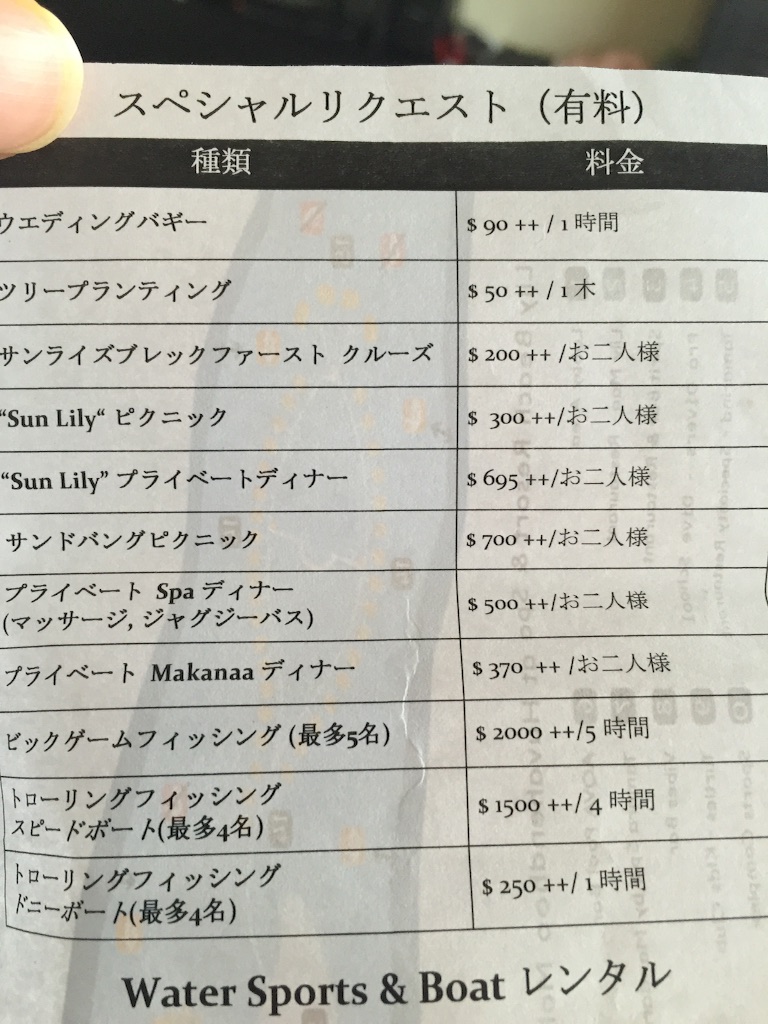 スペシャルリクエスト（有料）
種類 料金
ウエディングバギー $ 90 ++ / 1 時間
ツリープランティング $ 50 ++ / 1 木
サンライズブレックファースト クルーズ $ 200 ++ /お二人様
“Sun Lily“ ピクニック $ 300 ++/お二人様
“Sun Lily” プライベートディナー $ 695 ++/お二人様
サンドバングピクニック $ 700 ++/お二人様
プライベート Spa ディナー
(マッサージ, ジャグジーバス) $ 500 ++/お二人様
プライベート Makanaa ディナー $ 370 ++ /お二人様
ビックゲームフィッシング (最多5名) $ 2000 ++/5 時間
トローリングフィッシング
スピードボート(最多4名) $ 1500 ++/ 4 時間
トローリングフィッシング
ドニーボート(最多4名) $ 250 ++/ 1 時間
Water Sports & Boat レンタル